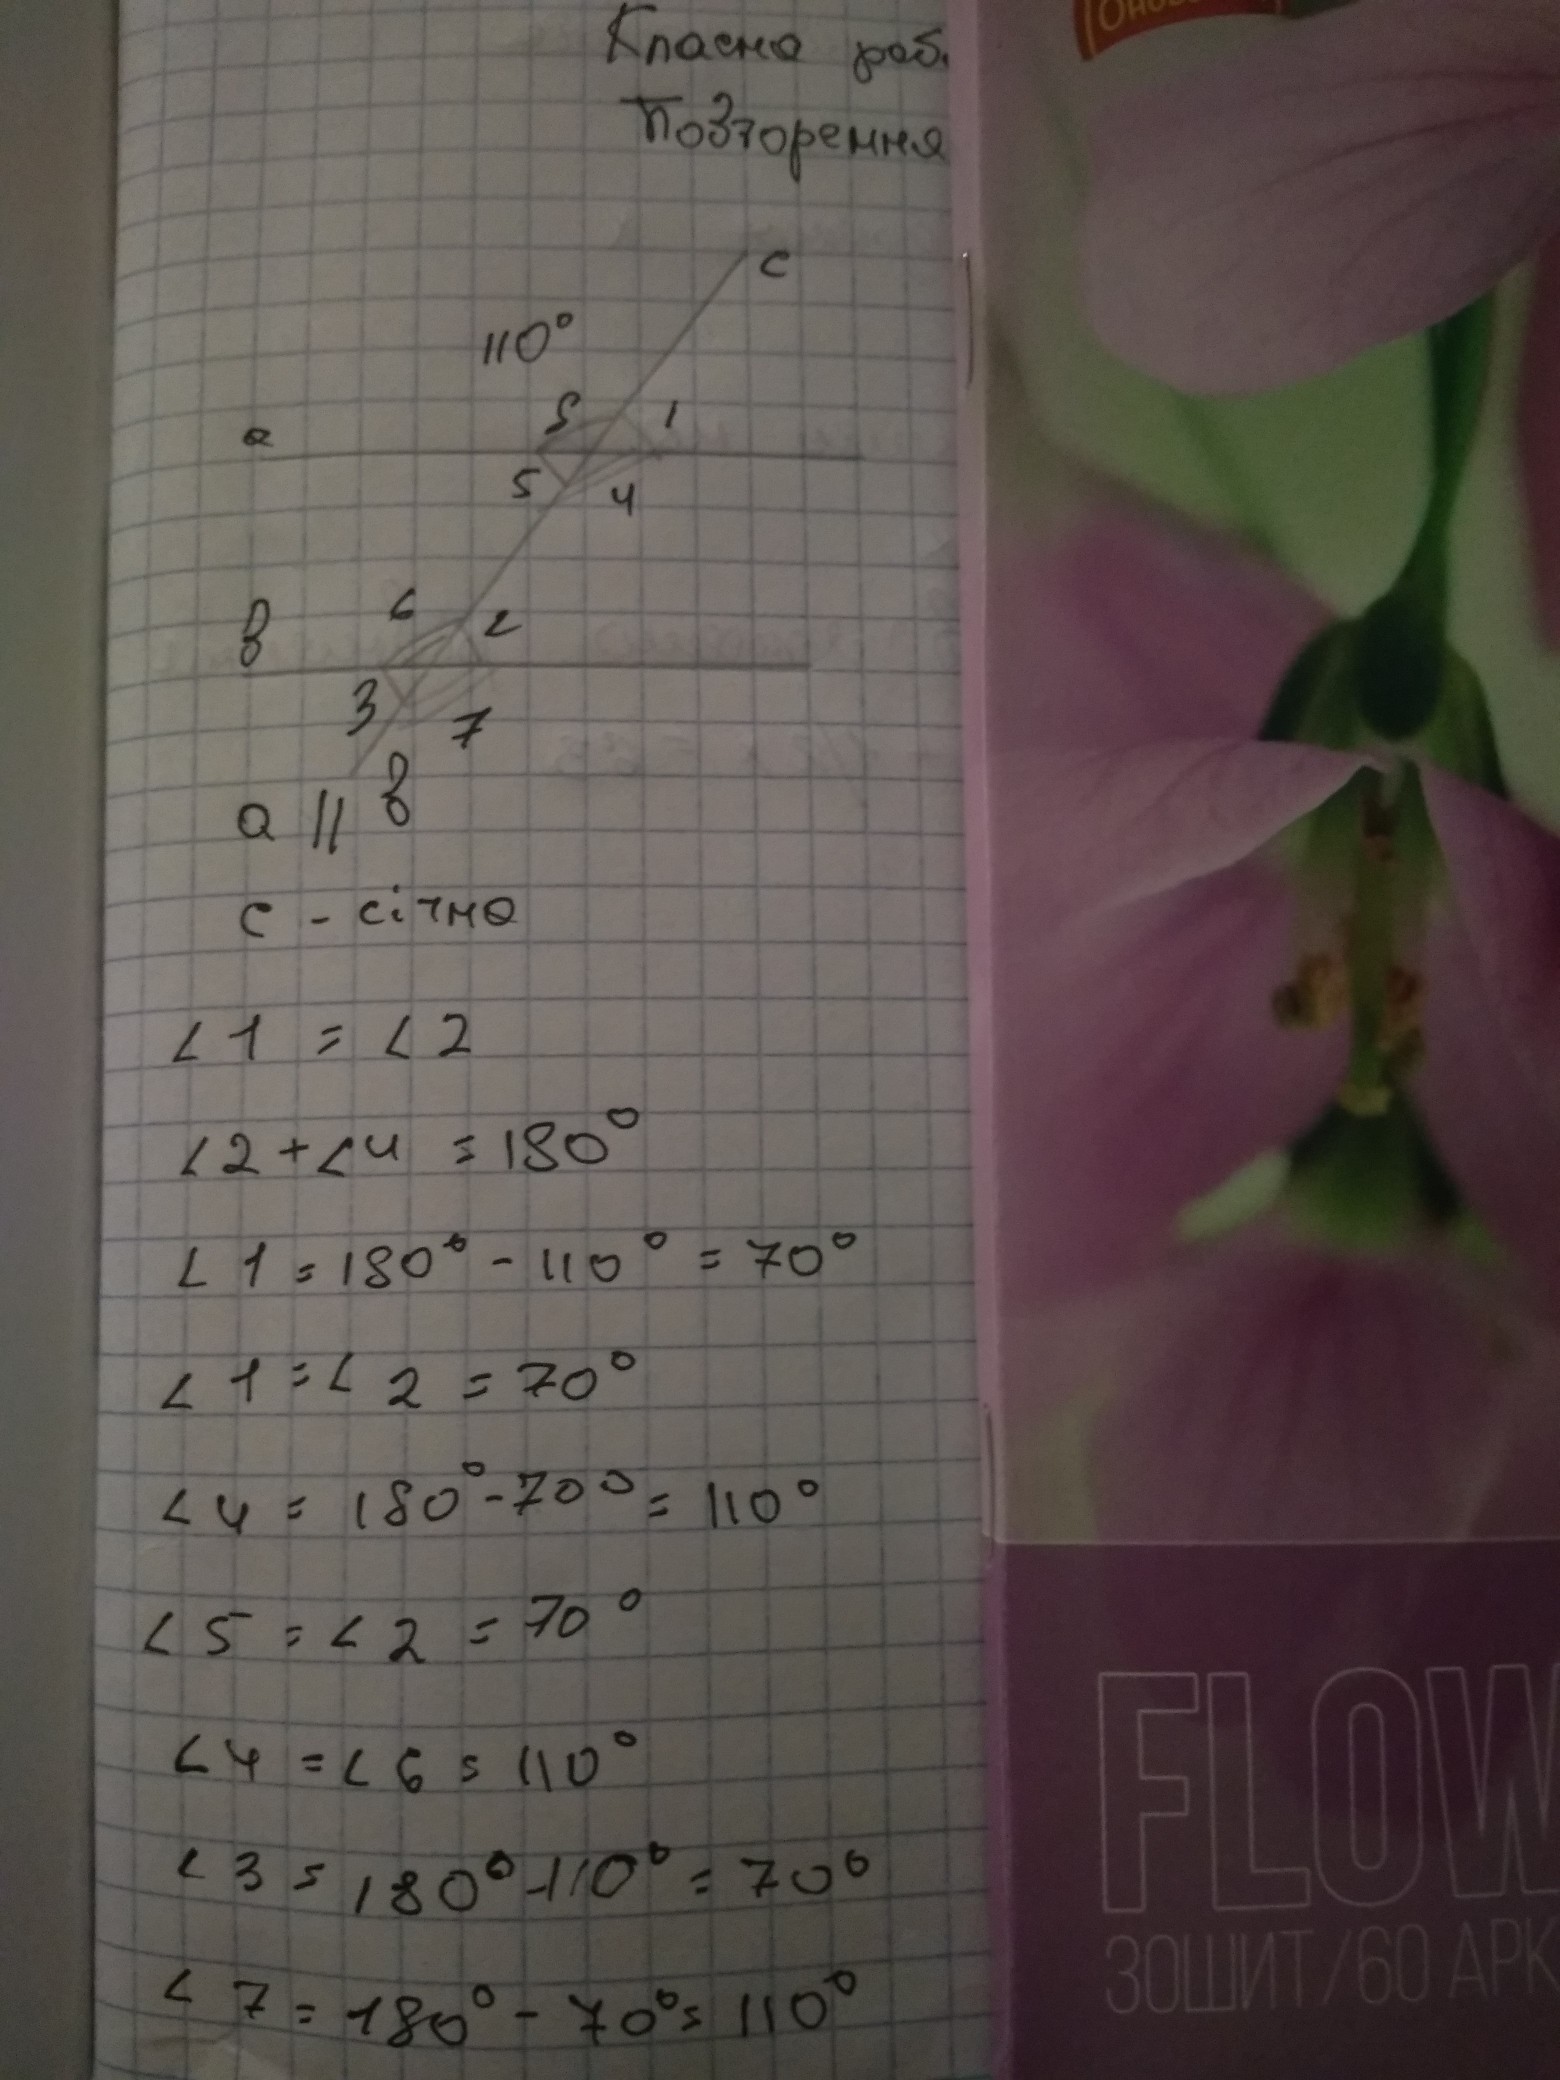 Класна роб.
Повторення
c
110°
8 1
a
5 4
6 2
в
3 7
a || в
c - січна
∠1 = ∠2
∠2 + ∠4 = 180°
∠1 = 180° - 110° = 70°
∠1 = ∠2 = 70°
∠4 = 180° - 70° = 110°
∠5 = ∠2 = 70°
∠4 = ∠6 = 110°
∠3 = 180° - 110° = 70°
∠7 = 180° - 70° = 110°
FLOW
ЗОШИТ/60 АРК